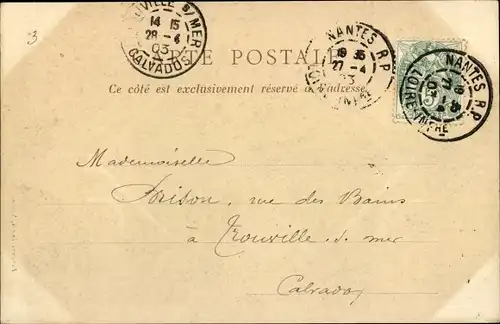 3
UVILLE S/ MER
14 15
28 - 4
03
CALVADOS
NANTES R.P.
19 35
27 - 4
03
NANTES R.P.
LOIRE-INFRE
CARTE POSTALE
Ce côté est exclusivement réservé à l'adresse
Mademoiselle
rue des Bains
à Trouville s. mer
Calvados